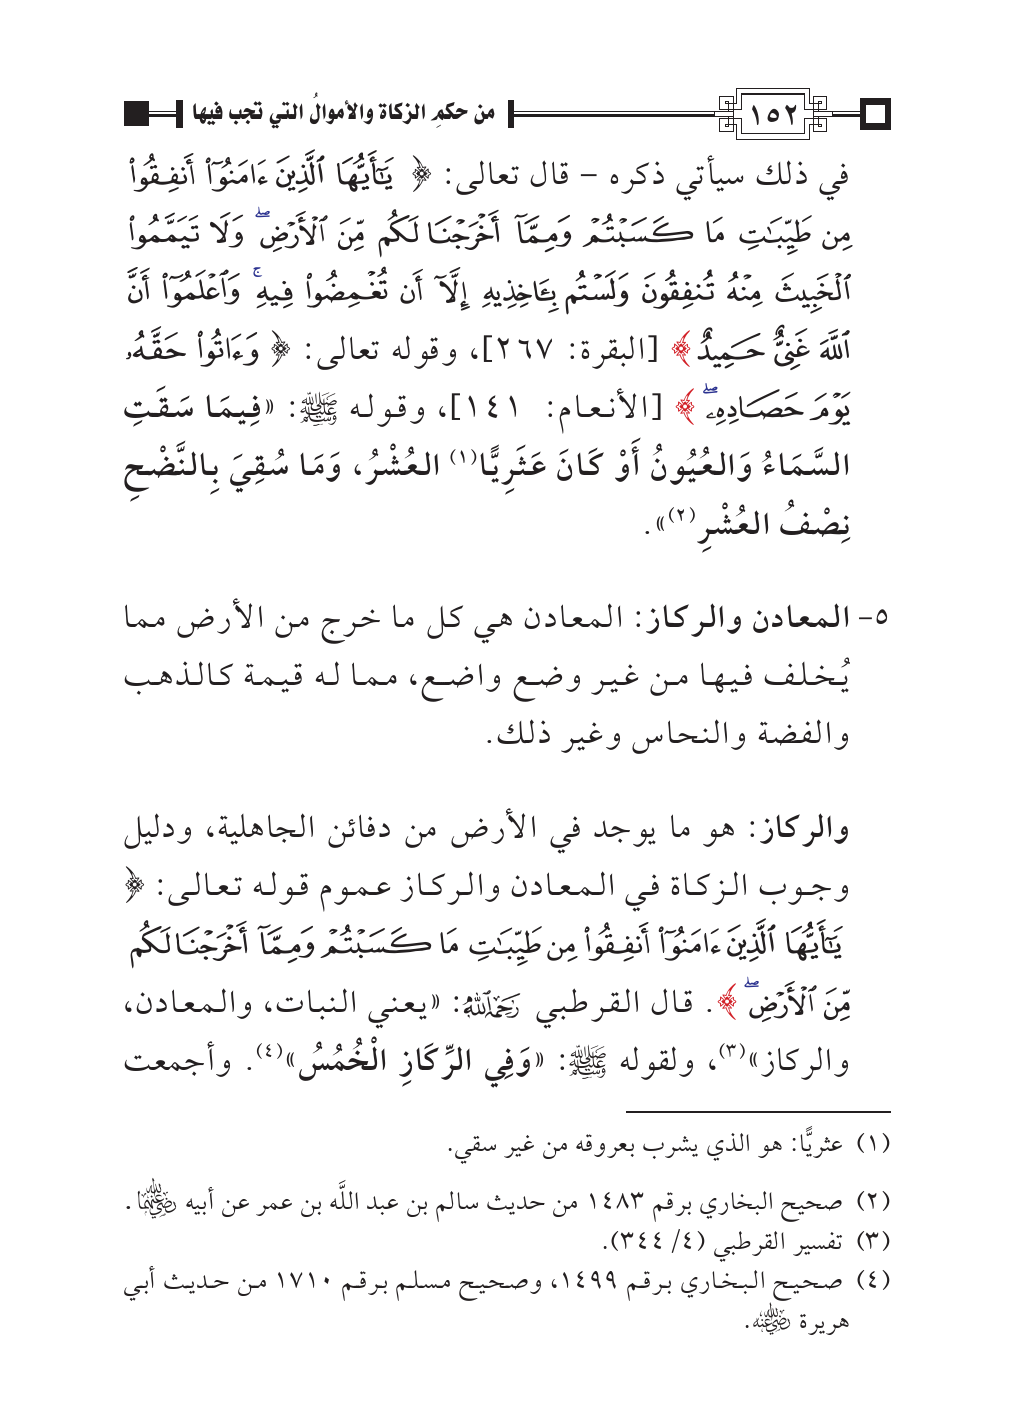 ١٥٢ من حكمِ الزكاة والأموالُ التي تجب فيها
في ذلك سيأتي ذكره – قال تعالى: ﴿ يَٰٓأَيُّهَا ٱلَّذِينَ ءَامَنُوٓاْ أَنفِقُواْ
مِن طَيِّبَٰتِ مَا كَسَبۡتُمۡ وَمِمَّآ أَخۡرَجۡنَا لَكُم مِّنَ ٱلۡأَرۡضِۖ وَلَا تَيَمَّمُواْ
ٱلۡخَبِيثَ مِنۡهُ تُنفِقُونَ وَلَسۡتُم بِـَٔاخِذِيهِ إِلَّآ أَن تُغۡمِضُواْ فِيهِۚ وَٱعۡلَمُوٓاْ أَنَّ
ٱللَّهَ غَنِيٌّ حَمِيدٌ﴾ [البقرة: ٢٦٧]، وقوله تعالى: ﴿ وَءَاتُواْ حَقَّهُۥ
يَوۡمَ حَصَادِهِۦۖ ﴾ [الأنعام: ١٤١]، وقوله ﷺ: «فِيمَا سَقَتِ
السَّمَاءُ وَالعُيُونُ أَوْ كَانَ عَثَرِيًّا(١) العُشْرُ، وَمَا سُقِيَ بِالنَّضْحِ
نِصْفُ العُشْرِ(٢)».
٥- المعادن والركاز: المعادن هي كل ما خرج من الأرض مما
يُخلف فيها من غير وضع واضع، مما له قيمة كالذهب
والفضة والنحاس وغير ذلك.
والركاز: هو ما يوجد في الأرض من دفائن الجاهلية، ودليل
وجوب الزكاة في المعادن والركاز عموم قوله تعالى: ﴿
يَٰٓأَيُّهَا ٱلَّذِينَ ءَامَنُوٓاْ أَنفِقُواْ مِن طَيِّبَٰتِ مَا كَسَبۡتُمۡ وَمِمَّآ أَخۡرَجۡنَا لَكُم
مِّنَ ٱلۡأَرۡضِۖ ﴾. قال القرطبي رَحِمَهُ ٱللَّهُ: «يعني النبات، والمعادن،
والركاز»(٣)، ولقوله ﷺ: «وَفِي الرِّكَازِ الْخُمُسُ»(٤). وأجمعت
(١) عثريًّا: هو الذي يشرب بعروقه من غير سقي.
(٢) صحيح البخاري برقم ١٤٨٣ من حديث سالم بن عبد اللَّه بن عمر عن أبيه رضي الله عنهما.
(٣) تفسير القرطبي (٤/ ٣٤٤).
(٤) صحيح البخاري برقم ١٤٩٩، وصحيح مسلم برقم ١٧١٠ من حديث أبي
هريرة رضي الله عنه.